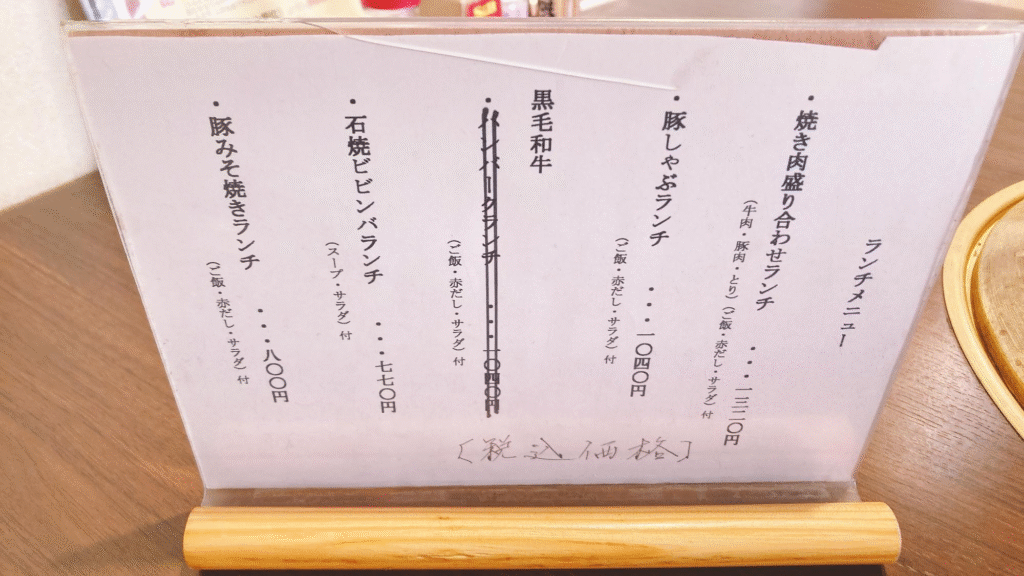 ランチメニュー
・焼き肉盛り合わせランチ ・・・一三二〇円
（牛肉・豚肉・とり）（ご飯・赤だし・サラダ）付
・豚しゃぶランチ ・・・一〇四〇円
（ご飯・赤だし・サラダ）付
黒毛和牛
・ハンバーグランチ ・・・一〇四〇円
（ご飯・赤だし・サラダ）付
・石焼ビビンバランチ ・・・七七〇円
（スープ・サラダ）付
・豚みそ焼きランチ ・・・八〇〇円
（ご飯・赤だし・サラダ）付
〔税込価格〕